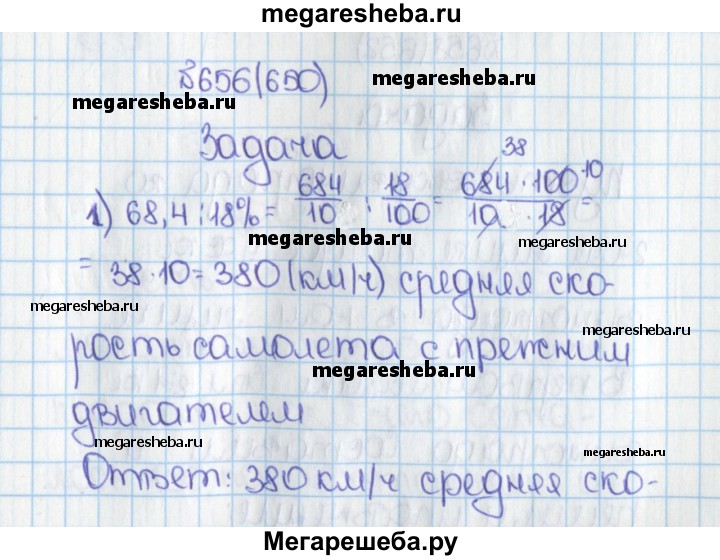 megaresheba.ru
№656(650)
megaresheba.ru
megaresheba.ru
Задача
38
1) 68,4 : 18% = 684/10 : 18/100 = 684·100 10/10·18 =
megaresheba.ru
megaresheba.ru
= 38·10 = 380 (км/ч) средняя ско-
megaresheba.ru
megaresheba.ru
рость самолета с прежним
megaresheba.ru
двигателем
megaresheba.ru
megaresheba.ru
Ответ: 380 км/ч средняя ско-
Мегарешеба.ру